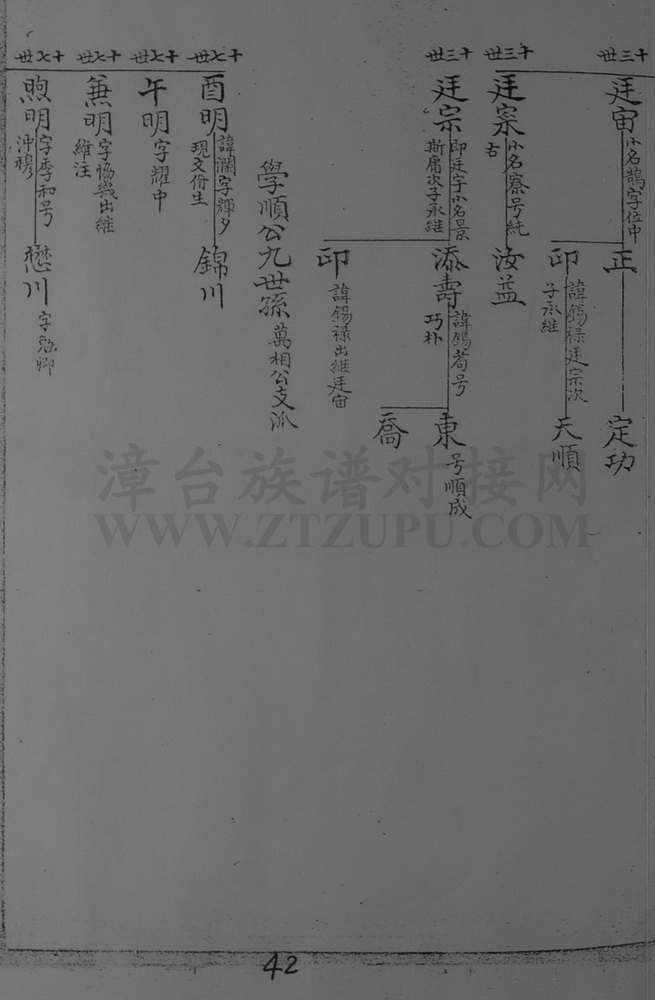 十三世
廷宙
小名鵲字位中
正
定功
印
諱錫祿廷宗次
子承継
天順
十三世
廷寀
小名寮号純
古
汝益
十三世
廷宗
即廷宇小名景
斯庸次子承継
添壽
諱錫蒼号
巧朴
東
号順成
喬
印
諱錫祿出継廷宙
學順公九世孫
萬相公支派
十七世
酉明
諱瀾字輝夕
現文份生
錦川
十七世
午明
字耀中
十七世
兼明
字協幾出継
維注
十七世
煦明
字季和号
沖穆
懋川
字勉卿
漳台族谱对接网
WWW.ZTZUPU.COM
42